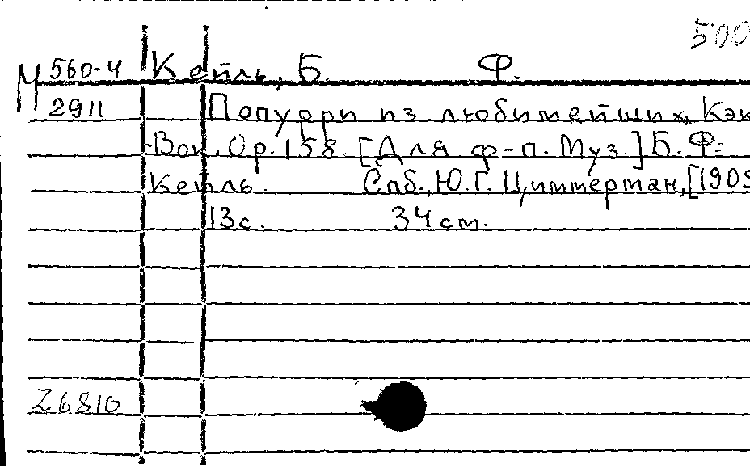 500
М 560-4 Кепль, Б. Ф.
2911 Попурри из любимейших Кэк
Вок. Op. 158. [Для ф-п. Муз.] Б. Ф.
Кепль. Спб., Ю. Г. Циммерман, [1909
13 с. 34 см.
26810